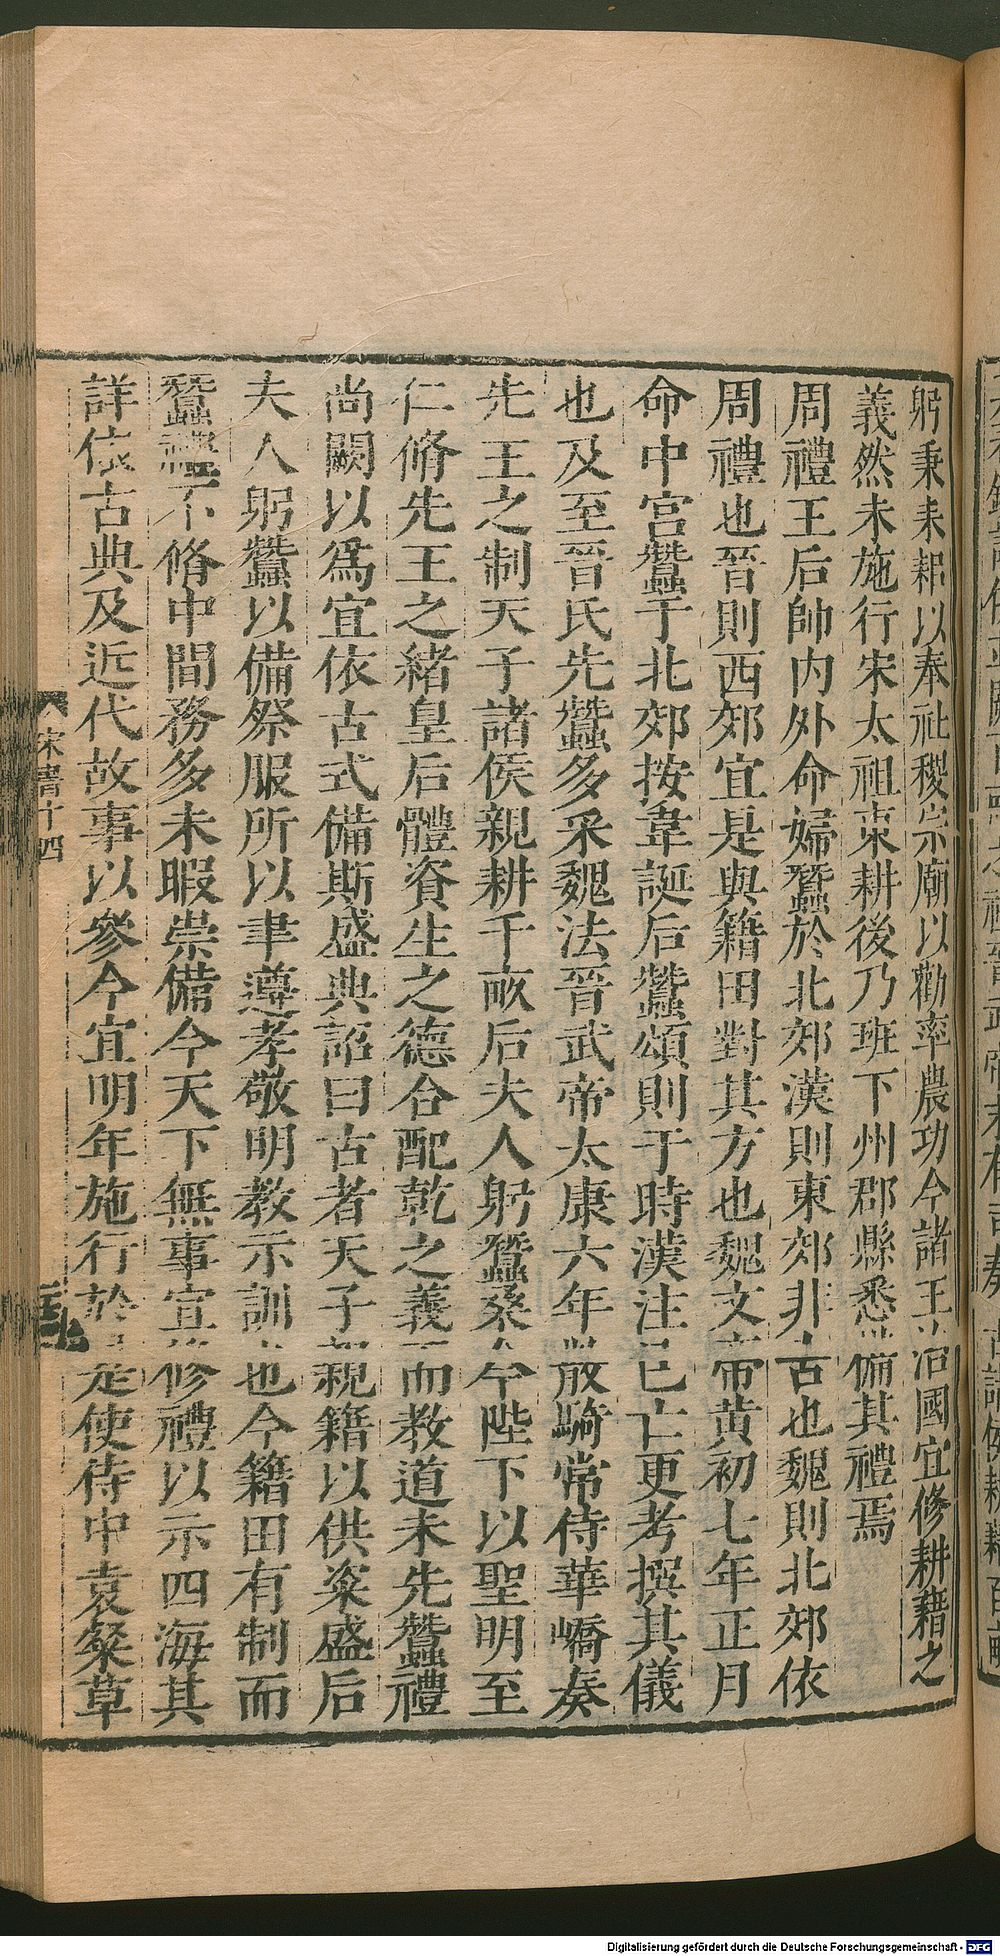 躬秉耒耜以奉社稷宗廟以勸率農功今諸王治國宜修耕藉之
義然未施行宋太祖東耕後乃班下州郡縣悉備其禮焉
周禮王后帥內外命婦蠶於北郊漢則東郊非古也魏則北郊依
周禮也晉則西郊宜是與籍田對其方也魏文帝黃初七年正月
命中宮蠶于北郊按韋誕后蠶頌則于時漢注已亡更考撰其儀
也及至晉氏先蠶多采魏法晉武帝太康六年散騎常侍華嶠奏
先王之制天子諸侯親耕千畝后夫人躬蠶桑今陛下以聖明至
仁脩先王之緒皇后體資生之德合配乾之義而教道未先蠶禮
尚闕以爲宜依古式備斯盛典詔曰古者天子親籍以供粢盛后
夫人躬蠶以備祭服所以聿遵孝敬明教示訓也今籍田有制而
蠶禮不脩中間務多未暇崇備今天下無事宜修禮以示四海其
詳依古典及近代故事以參今宜明年施行於是使侍中袁粲草
宋書十四
Digitalisierung gefördert durch die Deutsche Forschungsgemeinschaft - DFG